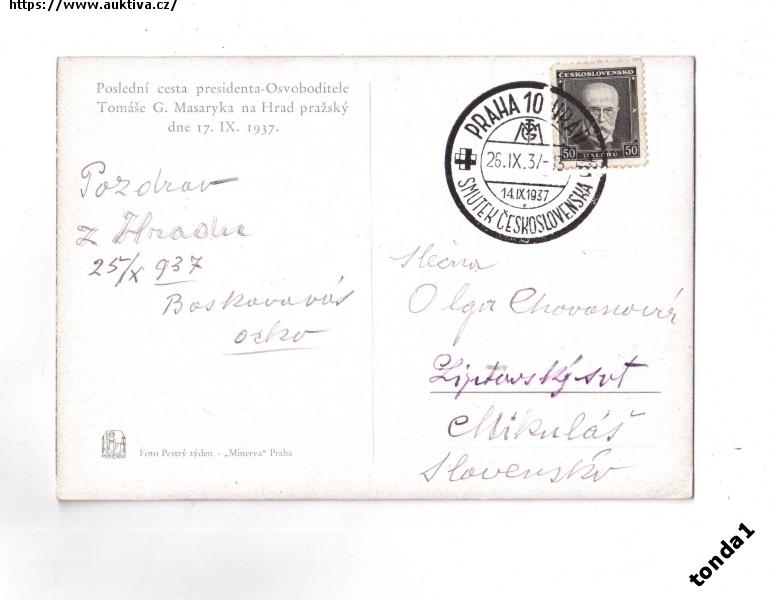 https://www.auktiva.cz/
Poslední cesta presidenta-Osvoboditele
Tomáše G. Masaryka na Hrad pražský
dne 17. IX. 1937.
Pozdrav
z Hradu
25/X 937
ČESKOSLOVENSKO
50 HALÉŘŮ 50
PRAHA 10 HRAD
TGM
26.IX.37
14.IX.1937
SMUTEK ČESKOSLOVENSKA
Slečna
Olga Chovanová
Liptovský svt
Mikuláš
Slovensko
MINERVA
Foto Pestrý týden - „Minerva" Praha
tonda1